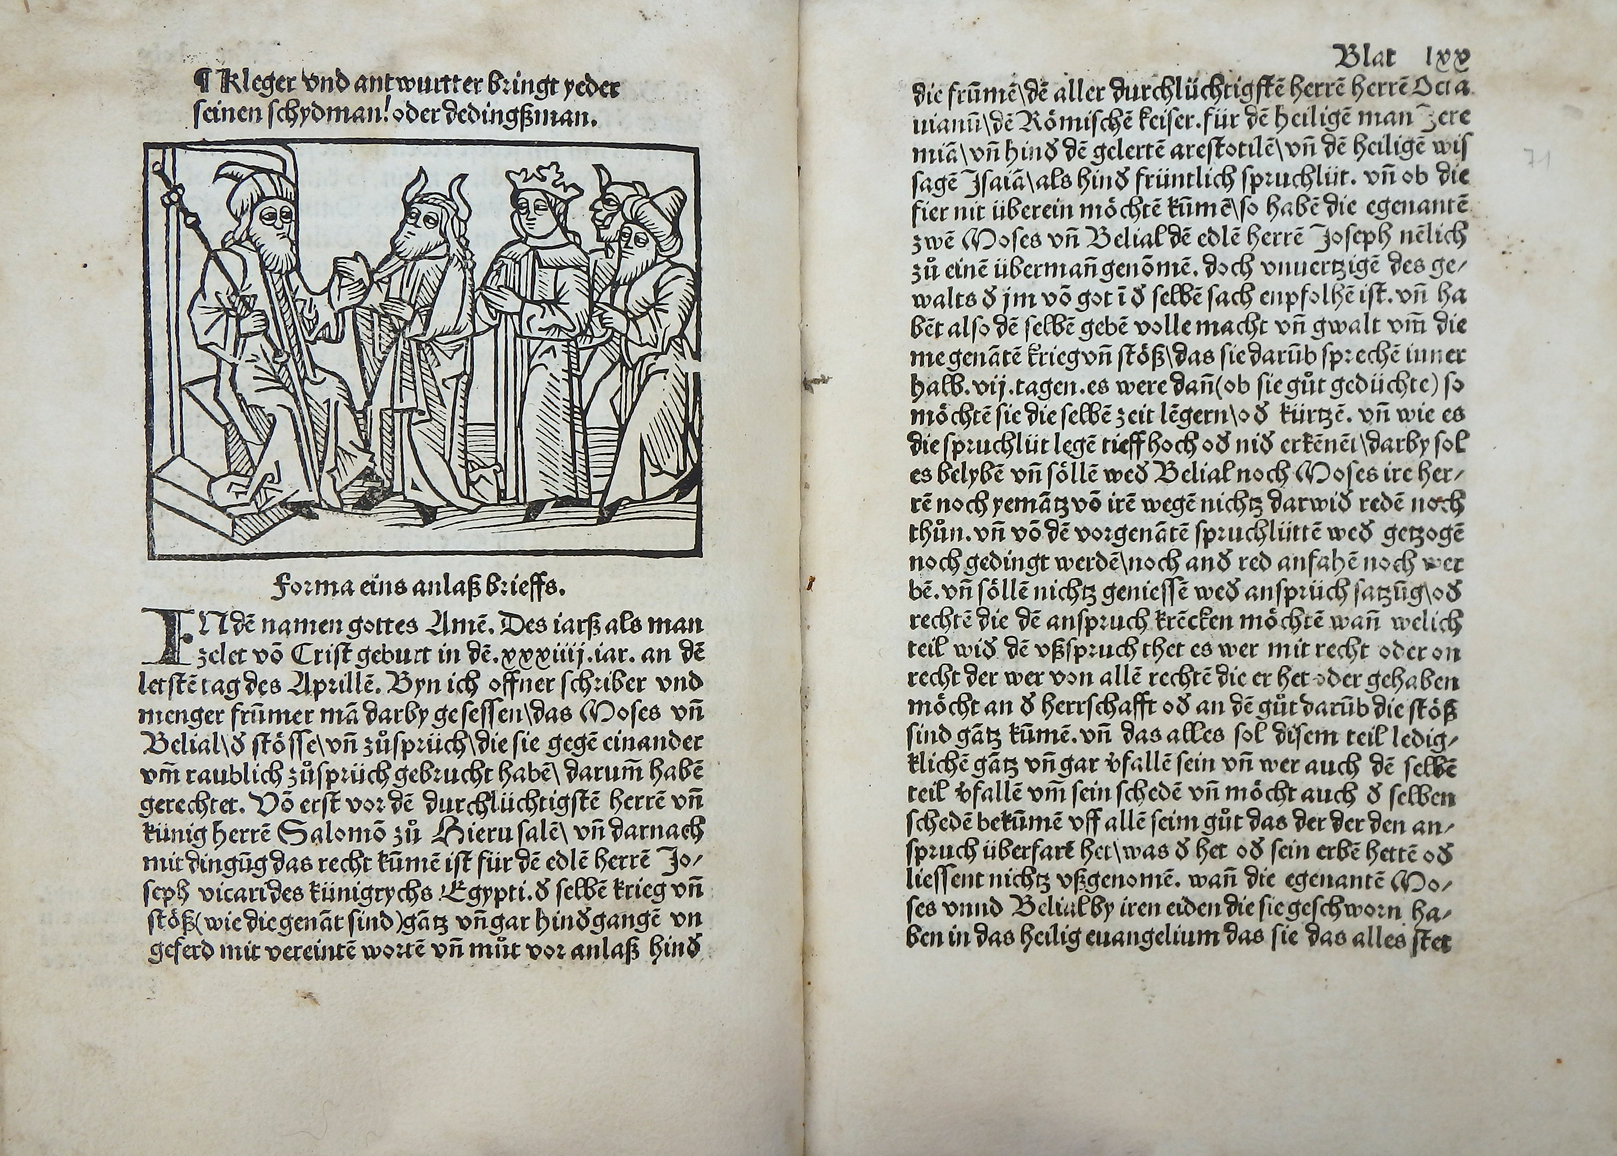 ¶ Kleger vnd antwurtter bringt yeder
seinen schydman! oder dedingßman.
Forma eins anlaß brieffs.
IN dē namen gottes Amē. Des iarß als man
zelet vō Crist geburt in dē .xxxiiij. iar. an dē
letstē tag des Aprillē. Byn ich offner schriber vnd
menger frūmer mā darby gesessen\das Moses vn̄
Belial\đ stösse\vn̄ zůsprüch\die sie gegē einander
vm̄ raublich zůsprüch gebrucht habē\ darum̄ habē
gerechtet. Vō erst vor dē durchlüchtigstē herrē vn̄
künig herrē Salomō zů Hierusalē\ vn̄ darnach
mit dingūg das recht kūmē ist für dē edlē herrē Jo/
seph vicari des künigrychs Egypti. đ selbē krieg vn̄
stöß(wie die genāt sind)gātz vn̄ gar hindđgangē vn
geferd mit vereintē wortē vn̄ můt vor anlaß hinđ
Blat lxx
die frūmē\dē aller durchlüchtigstē herrē herrē Octa
uianū\dē Römischē keiser. für dē heiligē man Jere
miā\vn̄ hinđ dē gelertē arestotilē\vn̄ dē heiligē wis
sagē Jsaiā\als hinđ früntlich spruchlüt. vn̄ ob die
fier nit überein möchtē kūmē\so habē die egenantē
zwē Moses vn̄ Belial dē edlē herrē Joseph nēlich
zů einē überman̄ genōmē. doch vnuertzigē des ge/
walts đ jm vō got ī đ selbē sach enpfolhē ist. vn̄ ha
bēt also dē selbē gebē volle macht vn̄ gwalt vm̄ die
megenātē krieg vn̄ stöß\das sie darūb sprechē inner
halb .vij. tagen. es were dan̄(ob sie gůt gedüchte) so
möchtē sie die selbē zeit lēgern\ođ kürtzē. vn̄ wie es
die spruchlüt legē tieff hoch ođ niđ erkēnēt\darby sol
es belybē vn̄ söllē weđ Belial noch Moses ire her/
rē noch yemātz vō irē wegē nichtz darwiđ redē noch
thůn. vn̄ vō dē vorgenātē spruchlüttē weđ getzogē
noch gedingt werdē\noch anđ red anfahē noch wer
bē. vn̄ söllē nichtz geniessē weđ ansprüch satzūg\ođ
rechtē die dē anspruch krēcken möchtē wan̄ welich
teil wiđ dē vßspruch thet es wer mit recht oder on
recht der wer von allē rechtē die er het oder gehaben
möcht an đ herrschafft ođ an dē gůt darūb die stöß
sind gātz kūmē. vn̄ das alles sol disem teil ledig/
klichē gātz vn̄ gar v̄fallē sein vn̄ wer auch dē selbē
teil v̄fallē vm̄ sein schedē vn̄ möcht auch đ selben
schedē bekūmē vff allē seim gůt das der der den an/
spruch überfarē het\was đ het ođ sein erbē hettē ođ
liessent nichtz vßgenomē. wan̄ die egenantē Mo/
ses vnnd Belial by iren eiden die sie geschworn ha/
ben in das heilig euangelium das sie das alles stet
71